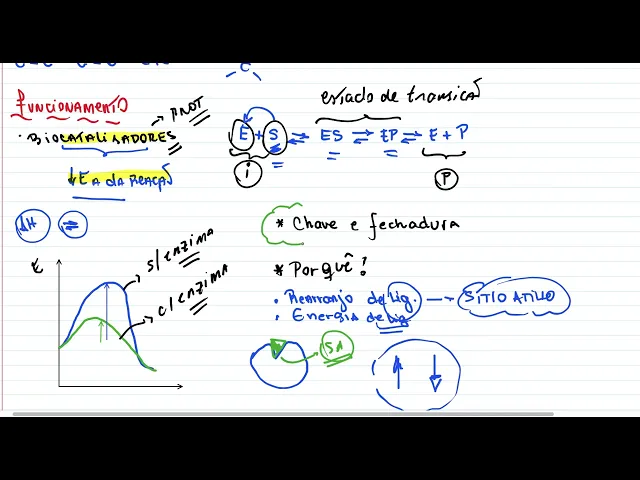 Funcionamento
· BIOCATALIZADORES → PROT
↓EA da REAÇÃO
ΔH ⇌
E
S/ENZIMA
C/ENZIMA
C
estado de transição
E + S ⇌ ES ⇌ EP ⇌ E + P
i P
* Chave e fechadura
* Por quê!
· Rearranjo de Lig. → SÍTIO ATIVO
· Energia de Lig.
SA